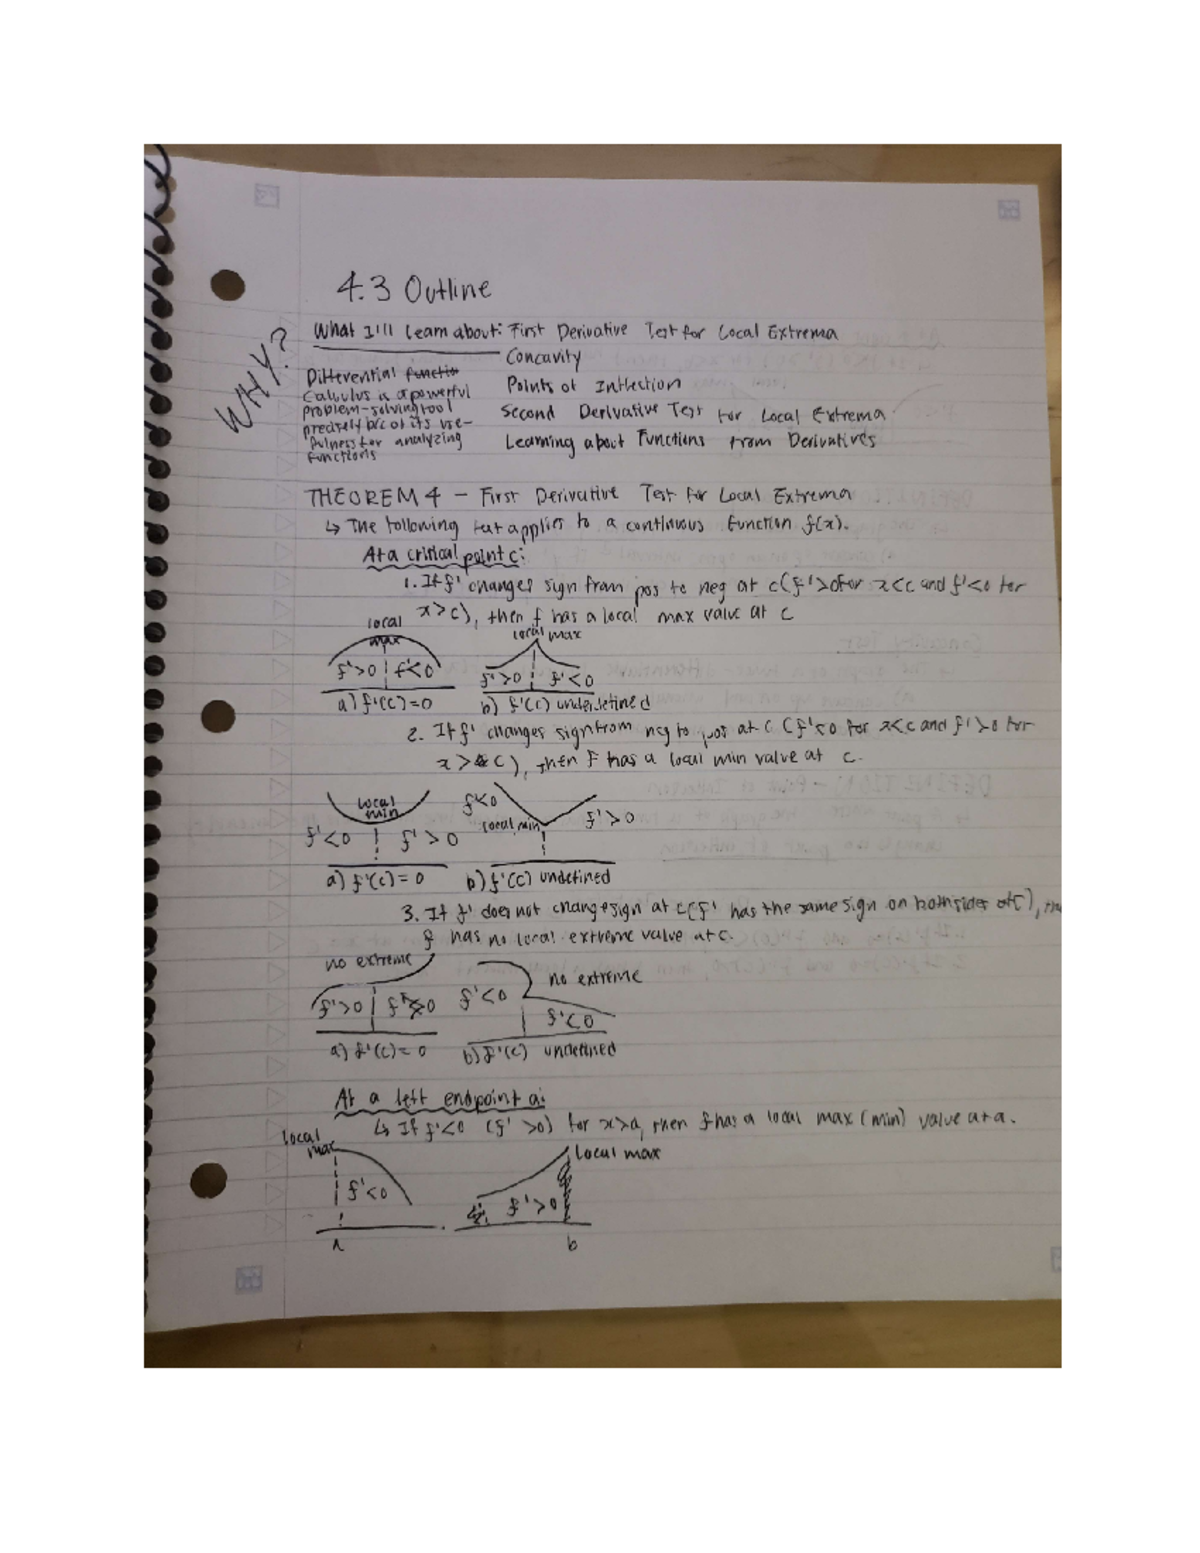 4.3 Outline
WHY?
What I'll Learn about: First Derivative Test for Local Extrema
Concavity
Points of Inflection
Second Derivative Test for Local Extrema
Learning about Functions from Derivatives
Differential
Calculus is a powerful
problem-solving tool
precisely b/c of its use-
fulness for analyzing
functions
THEOREM 4 - First Derivative Test for Local Extrema
↳ The following test applies to a continuous function f(x).
At a critical point c:
1. If f' changes sign from pos to neg at c (f'>0 for x<c and f'<0 for
x>c), then f has a local max value at c
local max
local max
f'>0 f'<0
f'>0 f'<0
a) f'(c)=0
b) f'(c) undefined
2. If f' changes sign from neg to pos at c (f'<0 for x<c and f'>0 for
x>c), then f has a local min value at c.
local min
f'<0 f'>0
f'<0
local min
f'>0
a) f'(c)=0
b) f'(c) undefined
3. If f' does not change sign at c (f' has the same sign on both sides of c),
f has no local extreme value at c.
no extreme
no extreme
f'>0
f'<0
f'<0
a) f'(c)=0
b) f'(c) undefined
At a left endpoint a:
↳ If f'<0 (f'>0) for x>a, then f has a local max (min) value at a.
local max
local max
f'<0
f'>0
a
b